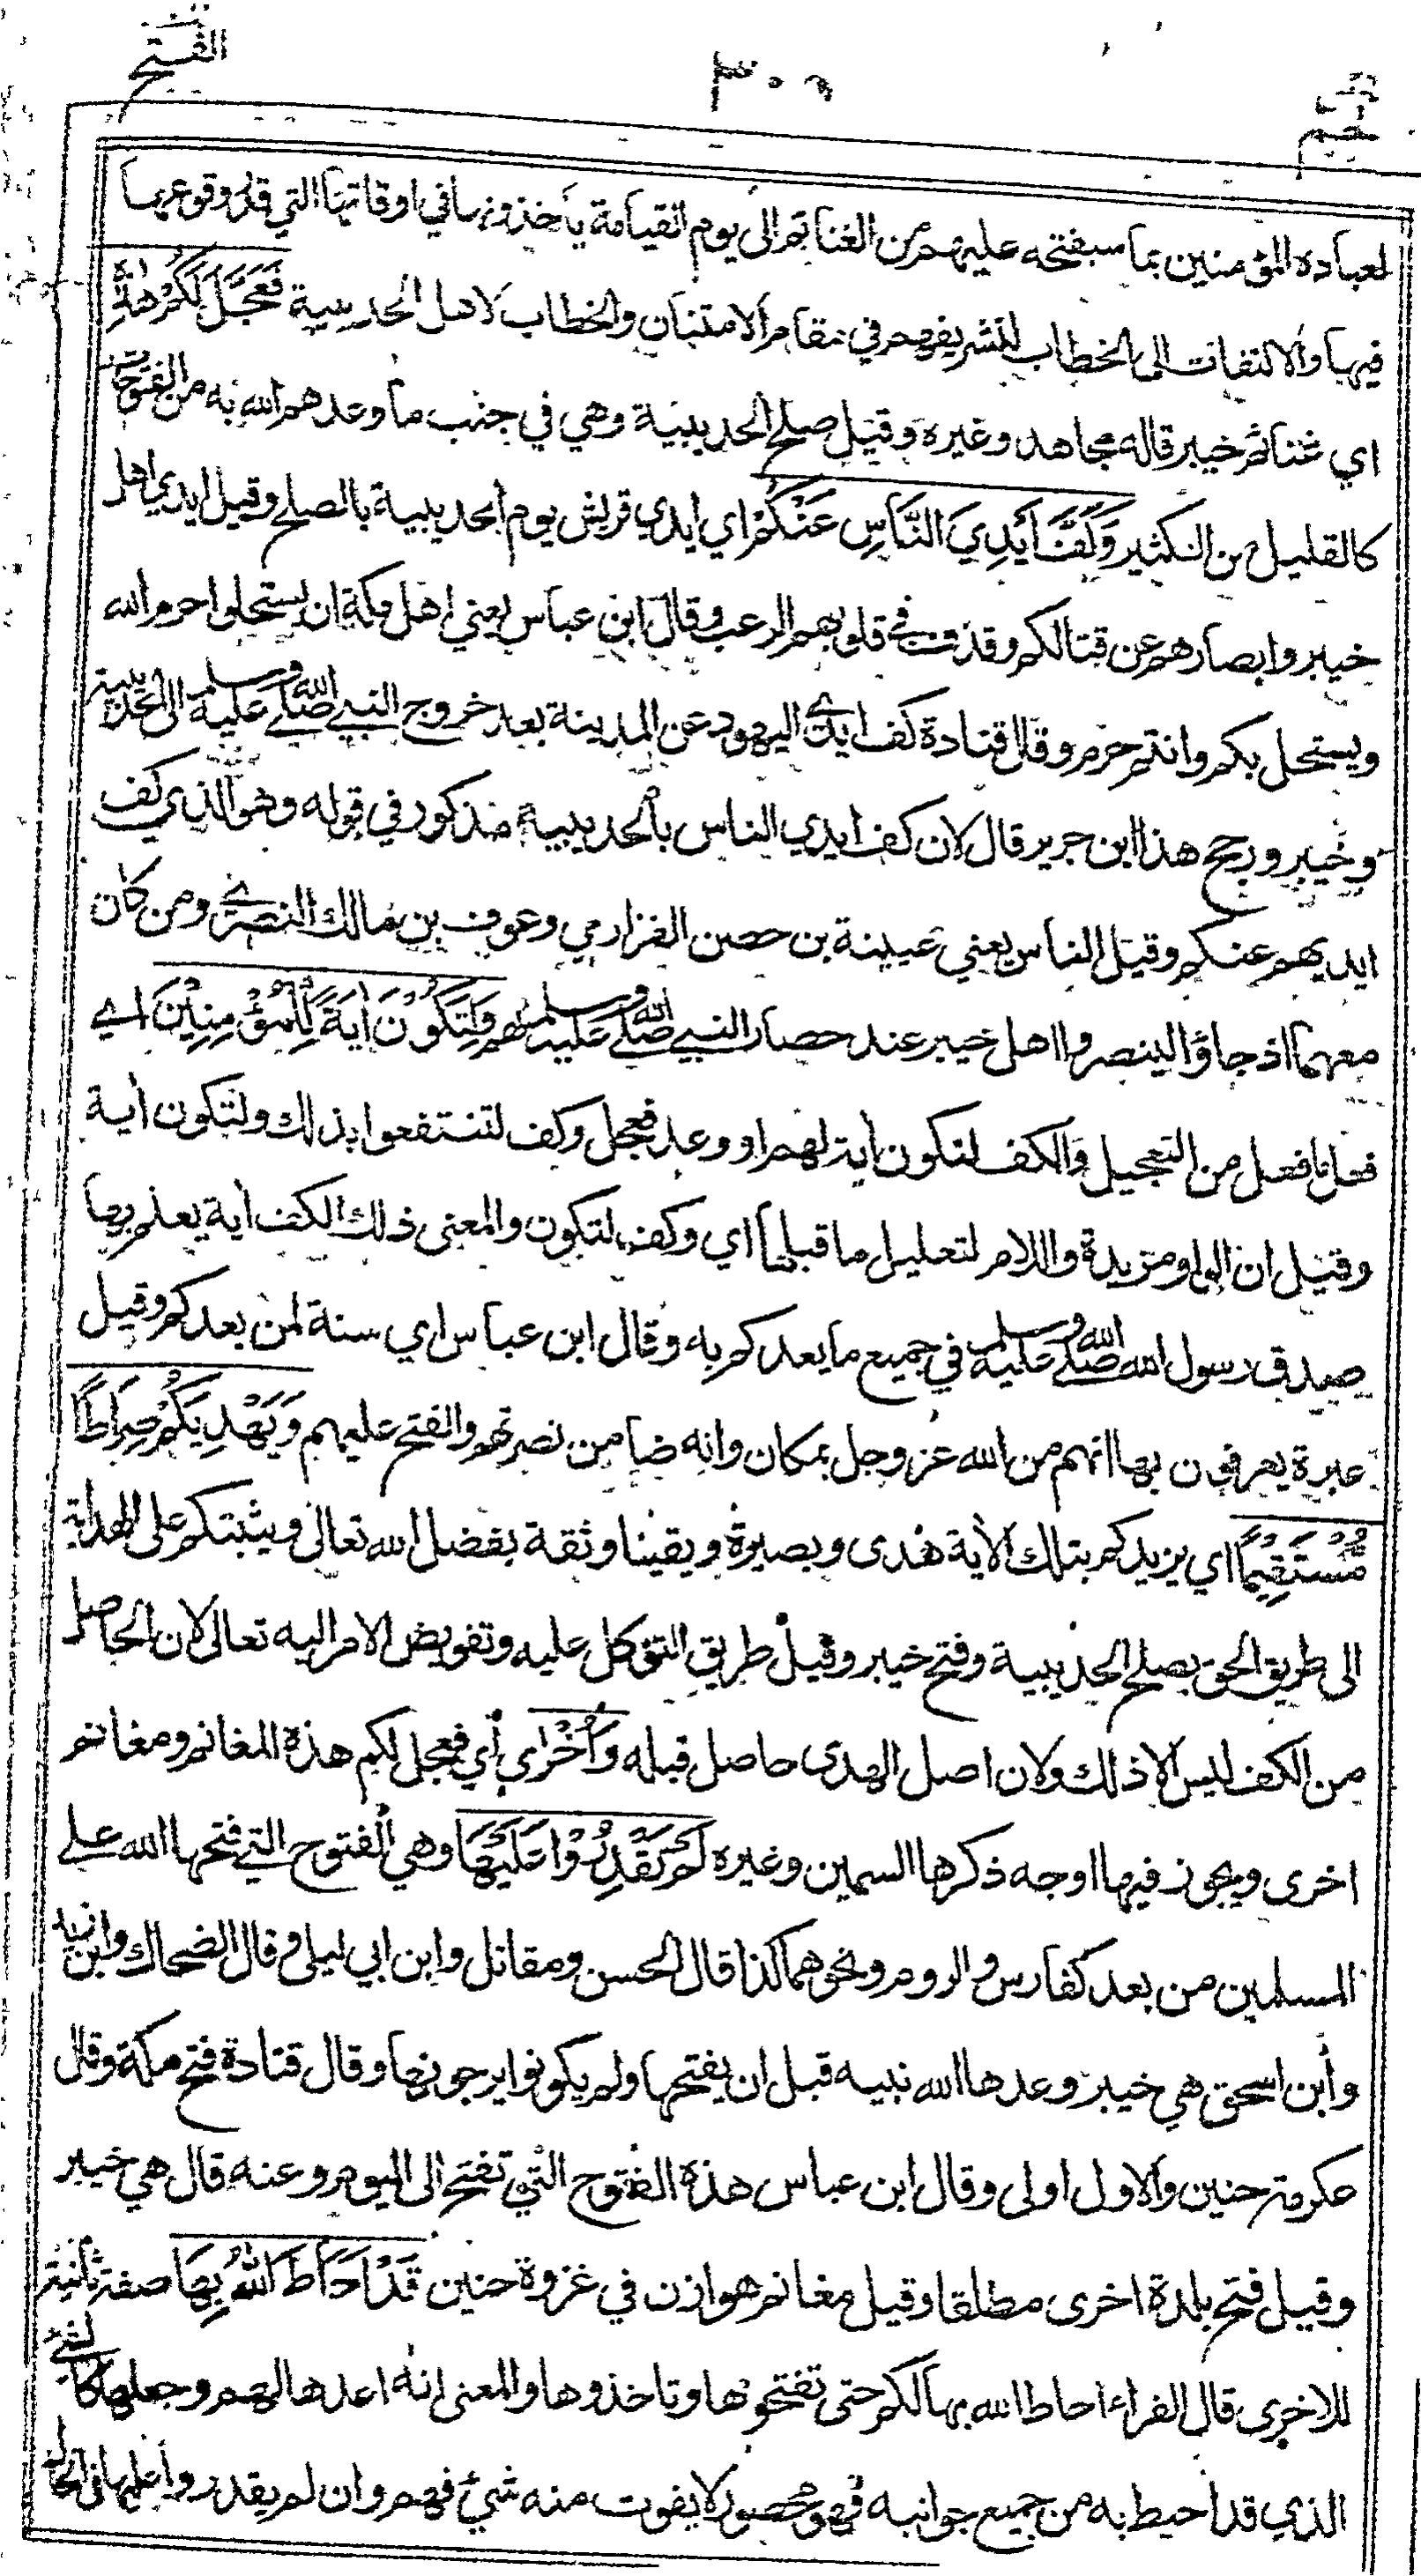 الفتح
٣٠٩
حم
لعباده المؤمنين بما سيفتحه عليهم من الغنائم الى يوم القيامة يأخذونها في اوقاتها التي قدر وقوعها
فيها والالتفات الى الخطاب لتشريفهم في مقام الامتنان والخطاب لاهل الحديبية فَعَجَّلَ لَكُمْ هٰذِهِ
اي غنائم خيبر قاله مجاهد وغيره وقيل صلح الحديبية وهي في جنب ما وعدهم الله به من الفتوحات
كالقليل من الكثير وَكَفَّ أَيْدِيَ النَّاسِ عَنْكُمْ اي ايدي قريش يوم الحديبية بالصلح وقيل ايدي اهل
خيبر وابصارهم عن قتالكم وقذف في قلوبهم الرعب وقال ابن عباس يعني اهل مكة ان يستحلوا حرم الله
ويستحل بكم وانتم حرم وقال قتادة كف ايدي اليهود عن المدينة بعد خروج النبي صلى الله عليه وسلم الى الحديبية
وخيبر ورجح هذا ابن جرير قال لان كف ايدي الناس بالحديبية مذكور في قوله وهو الذي كف
ايديهم عنكم وقيل الناس يعني عيينة بن حصن الفزاري وعوف بن مالك النصري ومن كان
معهما اذ جاؤا لينصروا اهل خيبر عند حصار النبي صلى الله عليه وسلم لهم وَلِتَكُوْنَ اٰيَةً لِّلْمُؤْمِنِيْنَ اي
فعل ما فعل من التعجيل والكف لتكون اٰية لهم او وعد فعجل وكف لتنتفعوا بذلك ولتكون اٰية
وقيل ان الواو مزيدة واللام لتعليل ما قبلها اي وكف لتكون والمعنى ذلك الكف اٰية يعلم بها
صدق رسول الله صلى الله عليه وسلم في جميع ما يعدكم به وقال ابن عباس اي سنة لمن بعدكم وقيل
عبرة يعرفون بها انهم من الله عز وجل بمكان وانه ضامن نصرتهم والفتح عليهم وَيَهْدِيَكُمْ صِرَاطًا
مُّسْتَقِيْمًا اي يزيدكم بتلك الاٰية هدى وبصيرة ويقينا وثقة بفضل الله تعالى ويثبتكم على الهداية
الى طريق الحق بصلح الحديبية وفتح خيبر وقيل طريق التوكل عليه وتفويض الامر اليه تعالى لان الحاصل
من الكف ليس الا ذلك ولان اصل الهدى حاصل قبله وَّاُخْرٰي أي فعجل لكم هذه المغانم ومغانم
اخرى ويجوز فيها اوجه ذكرها السمين وغيره لَمْ تَقْدِرُوْا عَلَيْهَا وهي الفتوح التي فتحها الله على
المسلمين من بعد كفارس والروم ونحوهما كذا قال الحسن ومقاتل وابن ابي ليلى وقال الضحاك وابن زيد
وأبن اسحق هي خيبر وعدها الله نبيه قبل ان يفتحها ولم يكونوا يرجونها وقال قتادة فتح مكة وقال
عكرمة حنين والاول اولى وقال ابن عباس هذه الفتوح التي تفتح الى اليوم وعنه قال هي خيبر
وقيل فتح بلدة اخرى مطلقا وقيل مغانم هوازن في غزوة حنين قَدْ اَحَاطَ اللهُ بِهَا صفة ثانية
للاخرى قال الفراء احاط الله بها لكم حتى تفتحوها وتاخذوها والمعنى انه اعدها لهم وجعلها كالشئ
الذي قد احيط به من جميع جوانبه فهو محصور لا يفوت منه شئ فهم وان لم يقدروا عليها في الحال